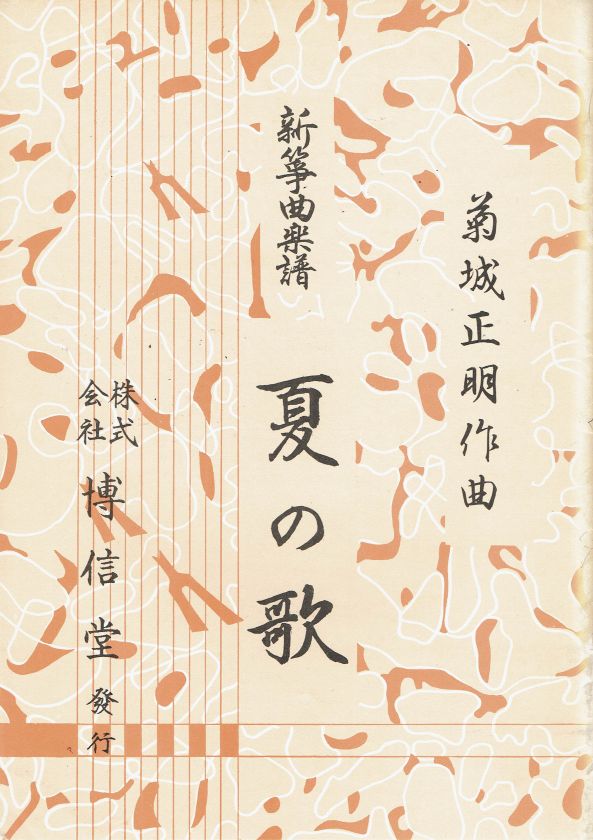 菊城正明作曲
新箏曲楽譜
夏の歌
株式
会社
博信堂
發行